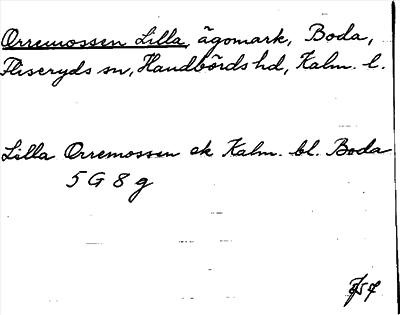 Orremossen Lilla, ägomark, Boda,
Fliseryds sn, Handbörds hd, Kalm. l.
Lilla Orremossen ek Kalm. bl. Boda
5 G 8 g